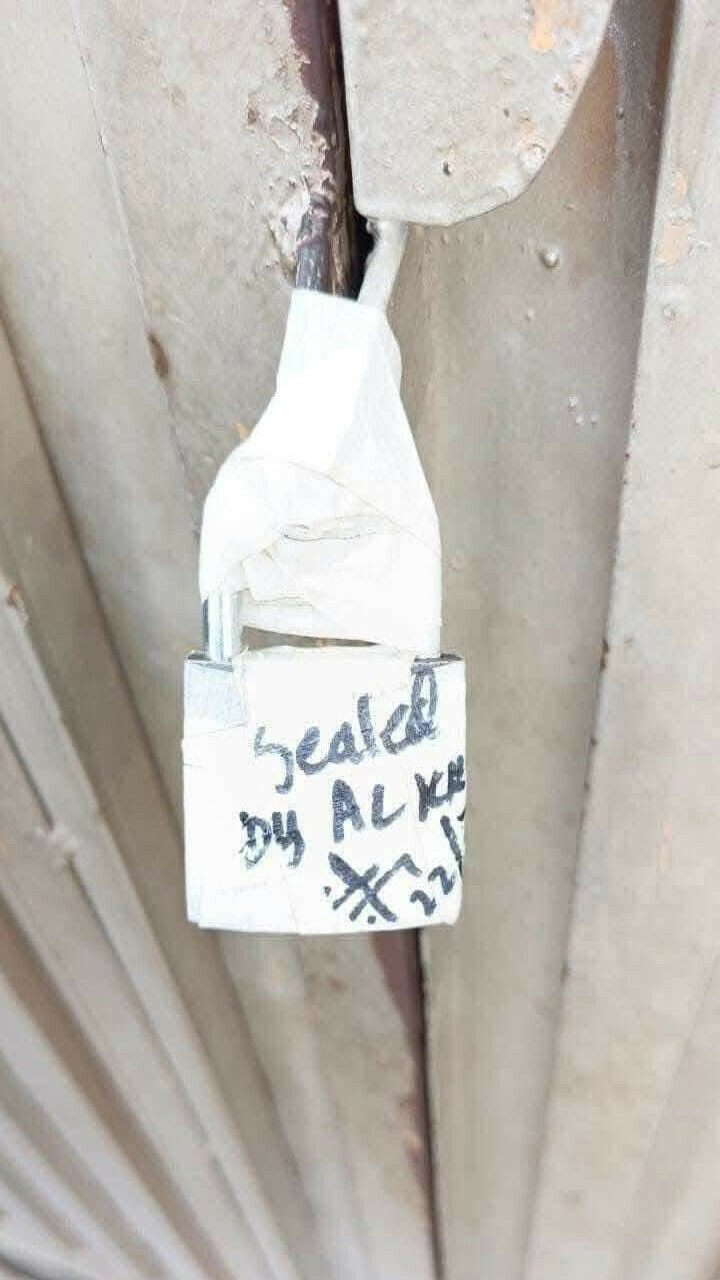 Sealed
By AL KH
22/